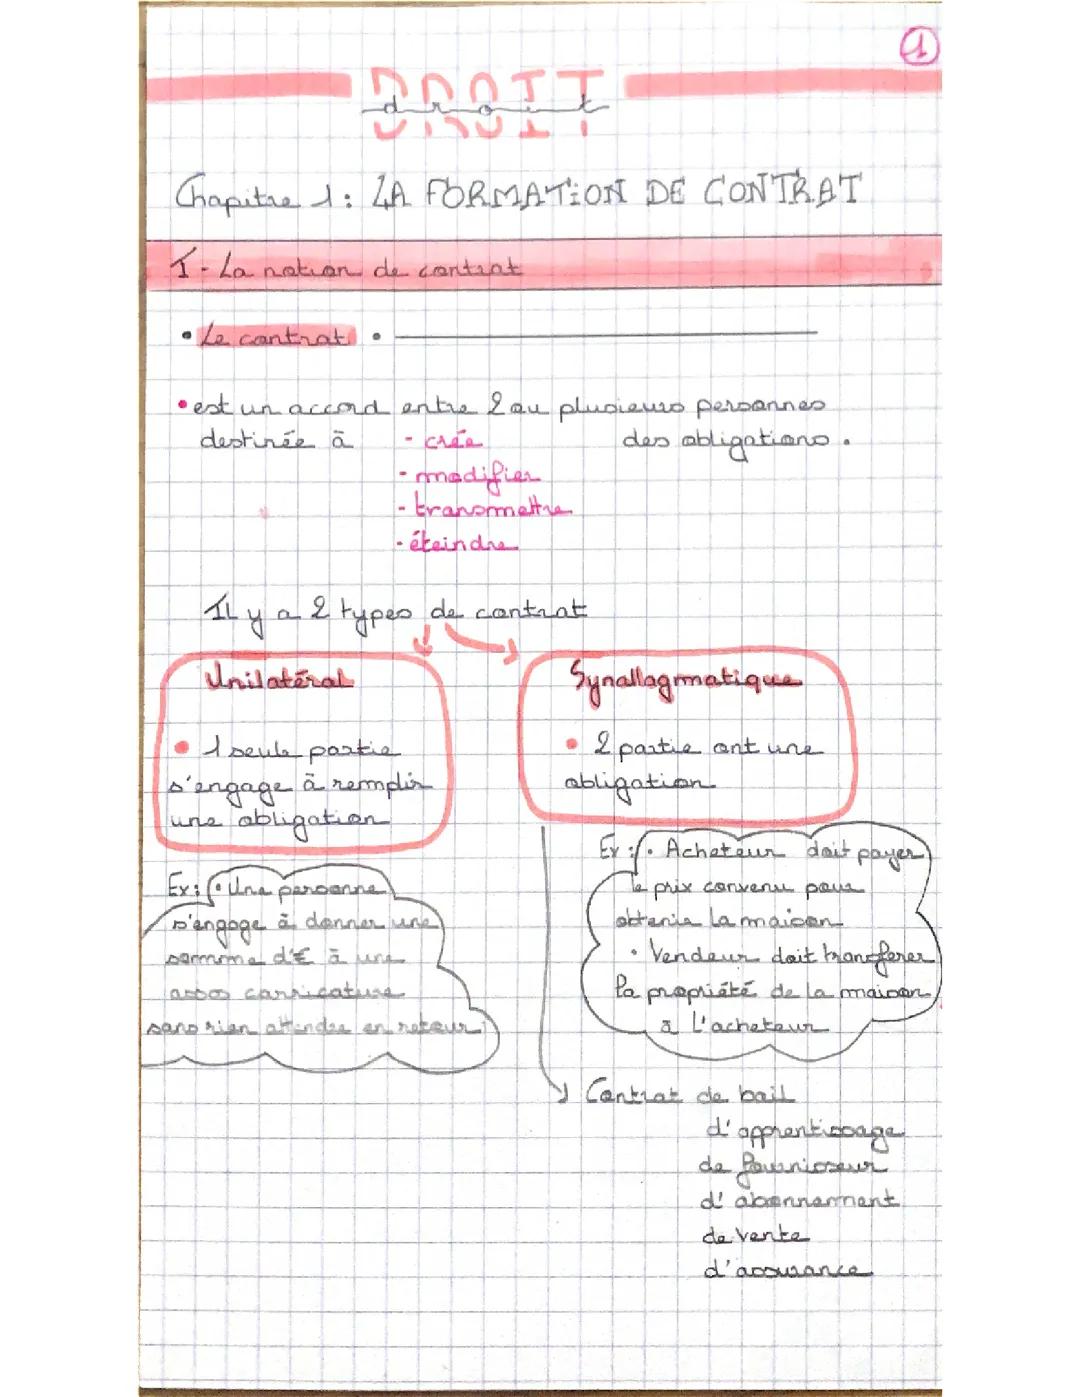 1
DROIT
droit
Chapitre 1 : LA FORMATION DE CONTRAT
I - La notion de contrat
• Le contrat •
• est un accord entre 2 ou plusieurs personnes
destinée à - crée des obligations.
- modifier
- transmettre
- éteindre
IL y a 2 types de contrat
Unilatéral
• 1 seule partie
s'engage à remplir
une obligation
Ex : • Une personne
s'engage à donner une
somme d'€ à une
assos carricature
sans rien attendre en retour
Synallagmatique
• 2 partie ont une
obligation
Ex : • Acheteur doit payer
le prix convenu pour
obtenir la maison
• Vendeur doit transferer
la propriété de la maison
à L'acheteur
Contrat de bail
d'apprentissage
de fournisseur
d'abonnement
de vente
d'assurance